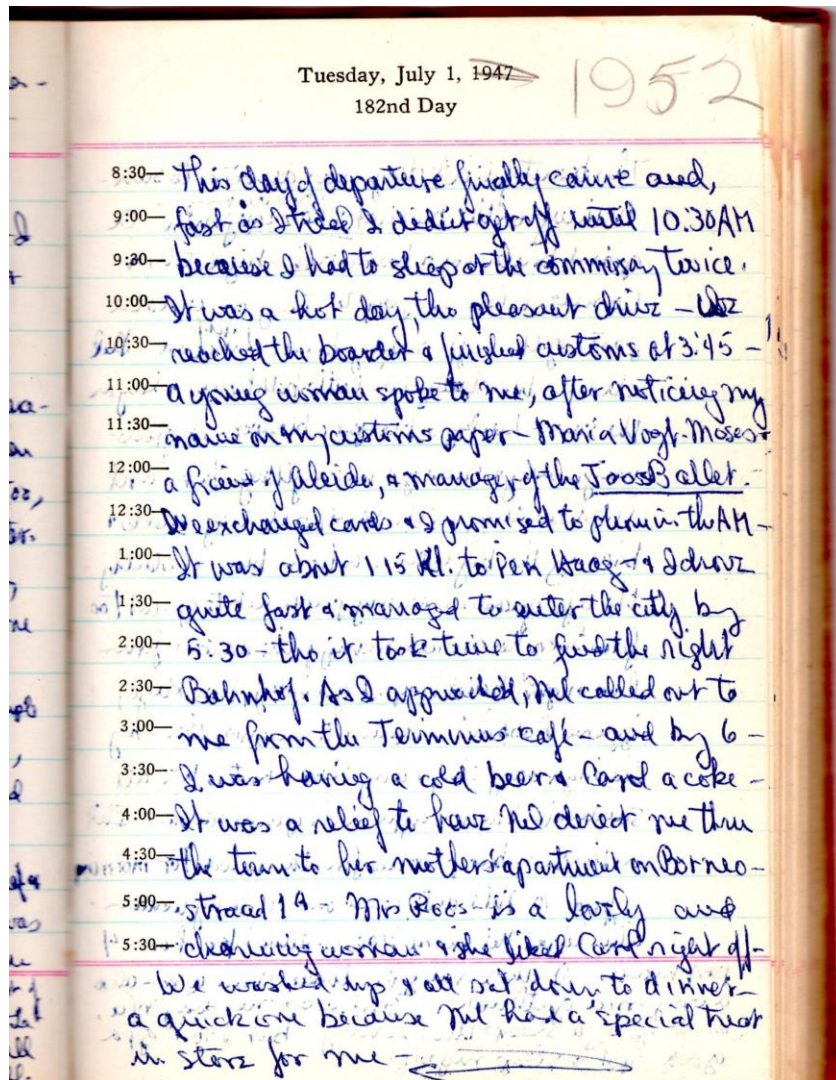 Tuesday, July 1, 1947 1952
182nd Day
8:30— This day of departure finally came and,
9:00— fast as I tried I didn't get off until 10:30 AM
9:30— because I had to shop at the commissary twice.
10:00— It was a hot day, tho pleasant drive — We
10:30— reached the boarder & finished customs at 3:45 —
11:00— a young woman spoke to me, after noticing my
11:30— name on my customs paper — Maria Vogt-Moses
12:00— a friend of Aleida, & manager of the Jooss Ballet.
12:30— We exchanged cards & I promised to phone in the AM —
1:00— It was about 115 Kl. to Den Haag — & I drove
1:30— quite fast & managed to enter the city by
2:00— 5:30 — tho it took time to find the right
2:30— Bahnhof. As I approached, Nel called out to
3:00— me from the Terminus café — and by 6 —
3:30— I was having a cold beer & Carol a coke —
4:00— It was a relief to have Nel direct me thru
4:30— the town to her mother's apartment on Borneo-
5:00— straad 19 — Mrs Roos is a lovely and
5:30— charming woman & she liked Carol right off —
We washed up & all sat down to dinner —
a quick one because Nel had a special treat
in store for me —